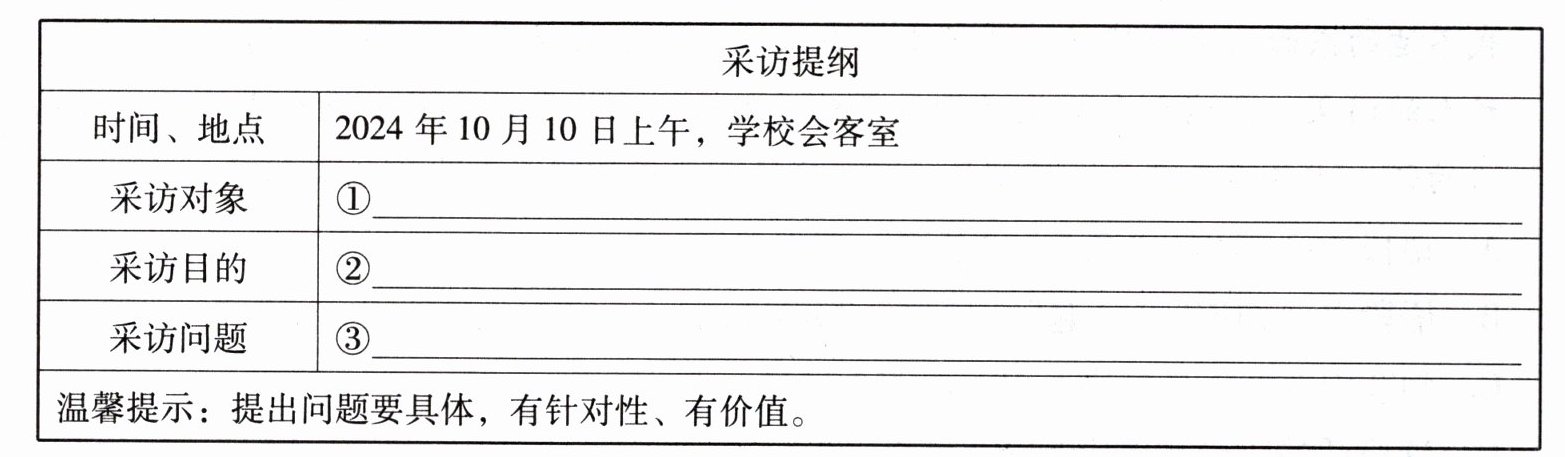 采访提纲
时间、地点 2024 年 10 月 10 日上午，学校会客室
采访对象 ①
采访目的 ②
采访问题 ③
温馨提示：提出问题要具体，有针对性、有价值。